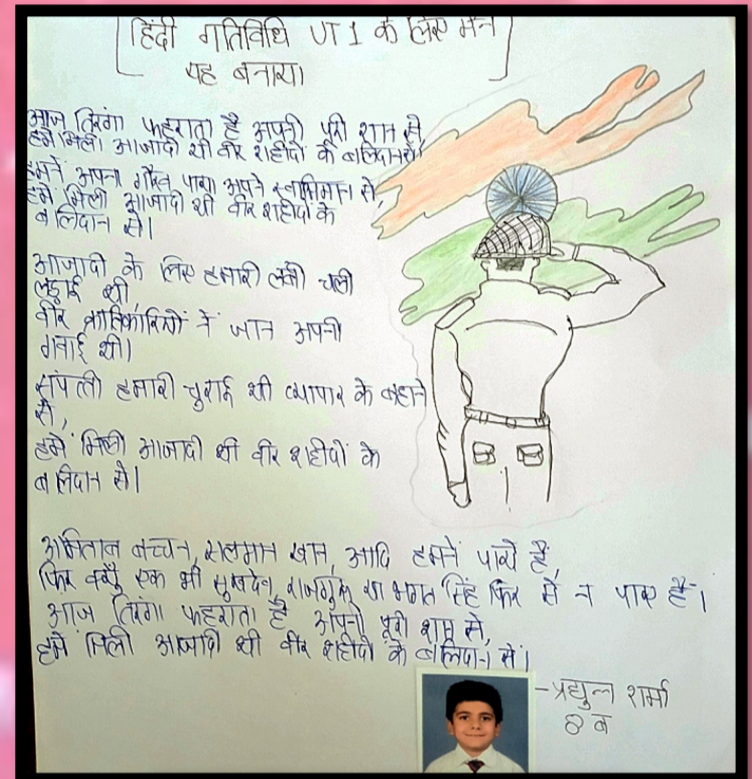 हिंदी गतिविधि UT 1 के लिए मैंने
यह बनाया
आज तिरंगा फहराता है अपनी पूरी शान से,
हमें मिली आजादी थी वीर शहीदों के बलिदान से।
हमनें अपना गौरव पाया अपने स्वाभिमान से,
हमें मिली आजादी थी वीर शहीदों के
बलिदान से।
आजादी के लिए हमारी लंबी चली
लड़ाई थी,
वीर क्रांतिकारियों नें जान अपनी
गवाई थी।
संपत्ती हमारी चुराई थी व्यापार के बहाने
से,
हमें मिली आजादी थी वीर शहीदों के
बलिदान से।
अमिताब बच्चन, सलमान खान, आदि हमनें पाये हैं,
फिर क्यूँ एक भी सुखदेव, राजगुरू या भगत सिंह फिर से न पाए हैं।
आज तिरंगा फहराता है अपनी पूरी शान से,
हमें मिली आजादी थी वीर शहीदों के बलिदान से।
- प्रद्युल शर्मा
8 ब